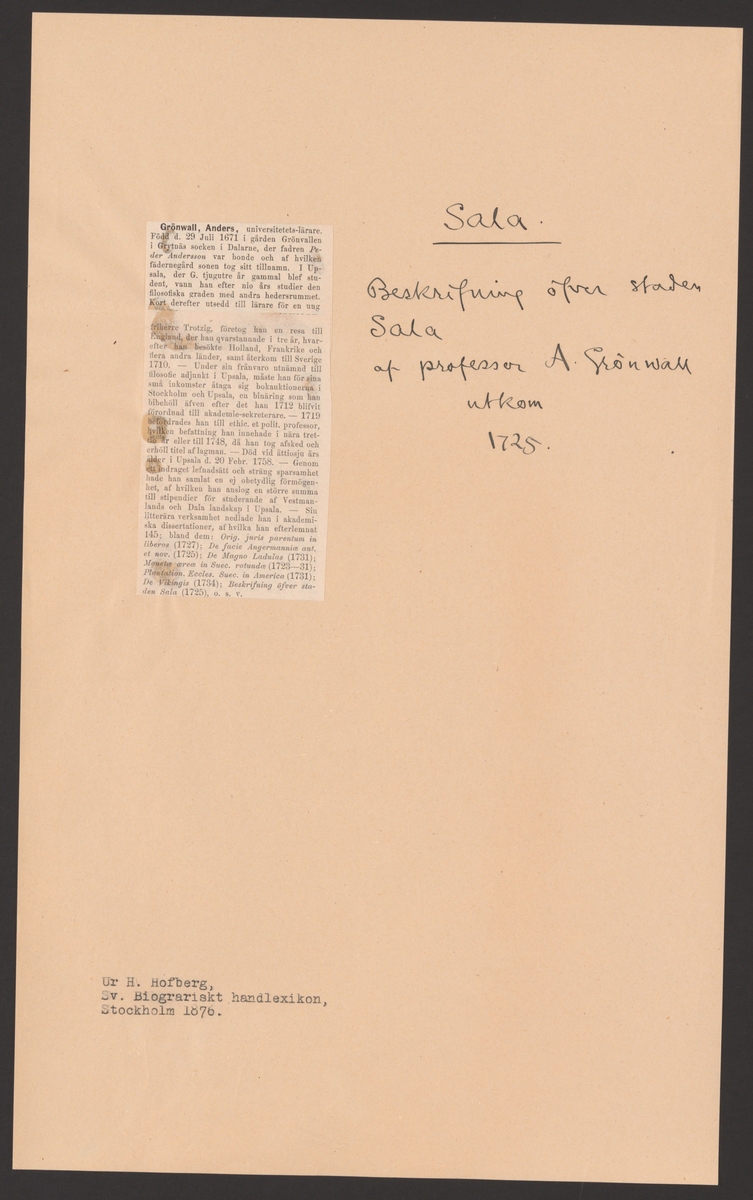 Grönwall, Anders, universitetets-lärare.
Född d. 29 Juli 1671 i gården Grönvallen
i Grytnäs socken i Dalarne, der fadren Pe-
der Andersson var bonde och af hvilken
fädernegård sonen tog sitt tillnamn. I Up-
sala, der G. tjugutre år gammal blef stu-
dent, vann han efter nio års studier den
filosofiska graden med andra hedersrummet.
Kort derefter utsedd till lärare för en ung
friherre Trotzig, företog han en resa till
England, der han qvarstannade i tre år, hvar-
efter han besökte Holland, Frankrike och
flera andra länder, samt återkom till Sverige
1710. — Under sin frånvaro utnämnd till
filosofie adjunkt i Upsala, måste han för sina
små inkomster åtaga sig bokauktionerna i
Stockholm och Upsala, en binäring som han
bibehöll äfven efter det han 1712 blifvit
förordnad till akademie-sekreterare. — 1719
befordrades han till ethic. et polit. professor,
hvilken befattning han innehade i nära tret-
tio år eller till 1748, då han tog afsked och
erhöll titel af lagman. — Död vid åttiosju års
ålder i Upsala d. 20 Febr. 1758. — Genom
ett indraget lefnadsätt och sträng sparsamhet
hade han samlat en ej obetydlig förmögen-
het, af hvilken han anslog en större summa
till stipendier för studerande af Vestman-
lands och Dala landskap i Upsala. — Sin
litterära verksamhet nedlade han i akademi-
ska dissertationer, af hvilka han efterlemnat
145; bland dem: Orig. juris parentum in
liberos (1727); De facie Angermanniæ ant.
et nov. (1725); De Magno Ladulas (1731);
Moneta ærea in Suec. rotunda (1723—31);
Plantation. Eccles. Suec. in America (1731);
De Vikingis (1734); Beskrifning öfver sta-
den Sala (1725), o. s. v.
Sala.
Beskrifning öfver staden
Sala
af professor A. Grönwall
utkom
1725.
Ur H. Hofberg,
Sv. Biograriskt handlexikon,
Stockholm 1876.